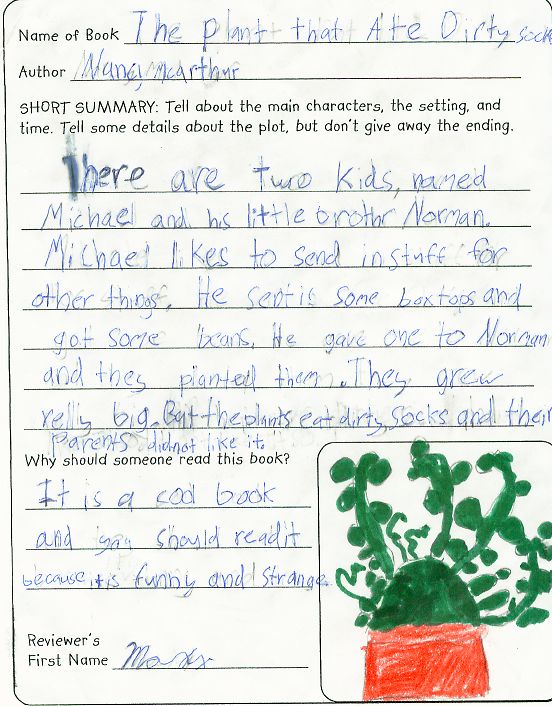 Name of Book The plant that Ate Dirty socks
Author Nancy Mcarthur
SHORT SUMMARY: Tell about the main characters, the setting, and
time. Tell some details about the plot, but don't give away the ending.
There are two kids, named
Michael and his little brothr Norman.
Michael likes to send in stuff for
other things. He sent is some boxtops and
got some beans. He gave one to Norman
and they planted them. They grew
relly big. But the plants eat dirty socks and their
parents didnot like it.
Why should someone read this book?
It is a book
and should read it
because it is funny and strange.
Reviewer's
First Name